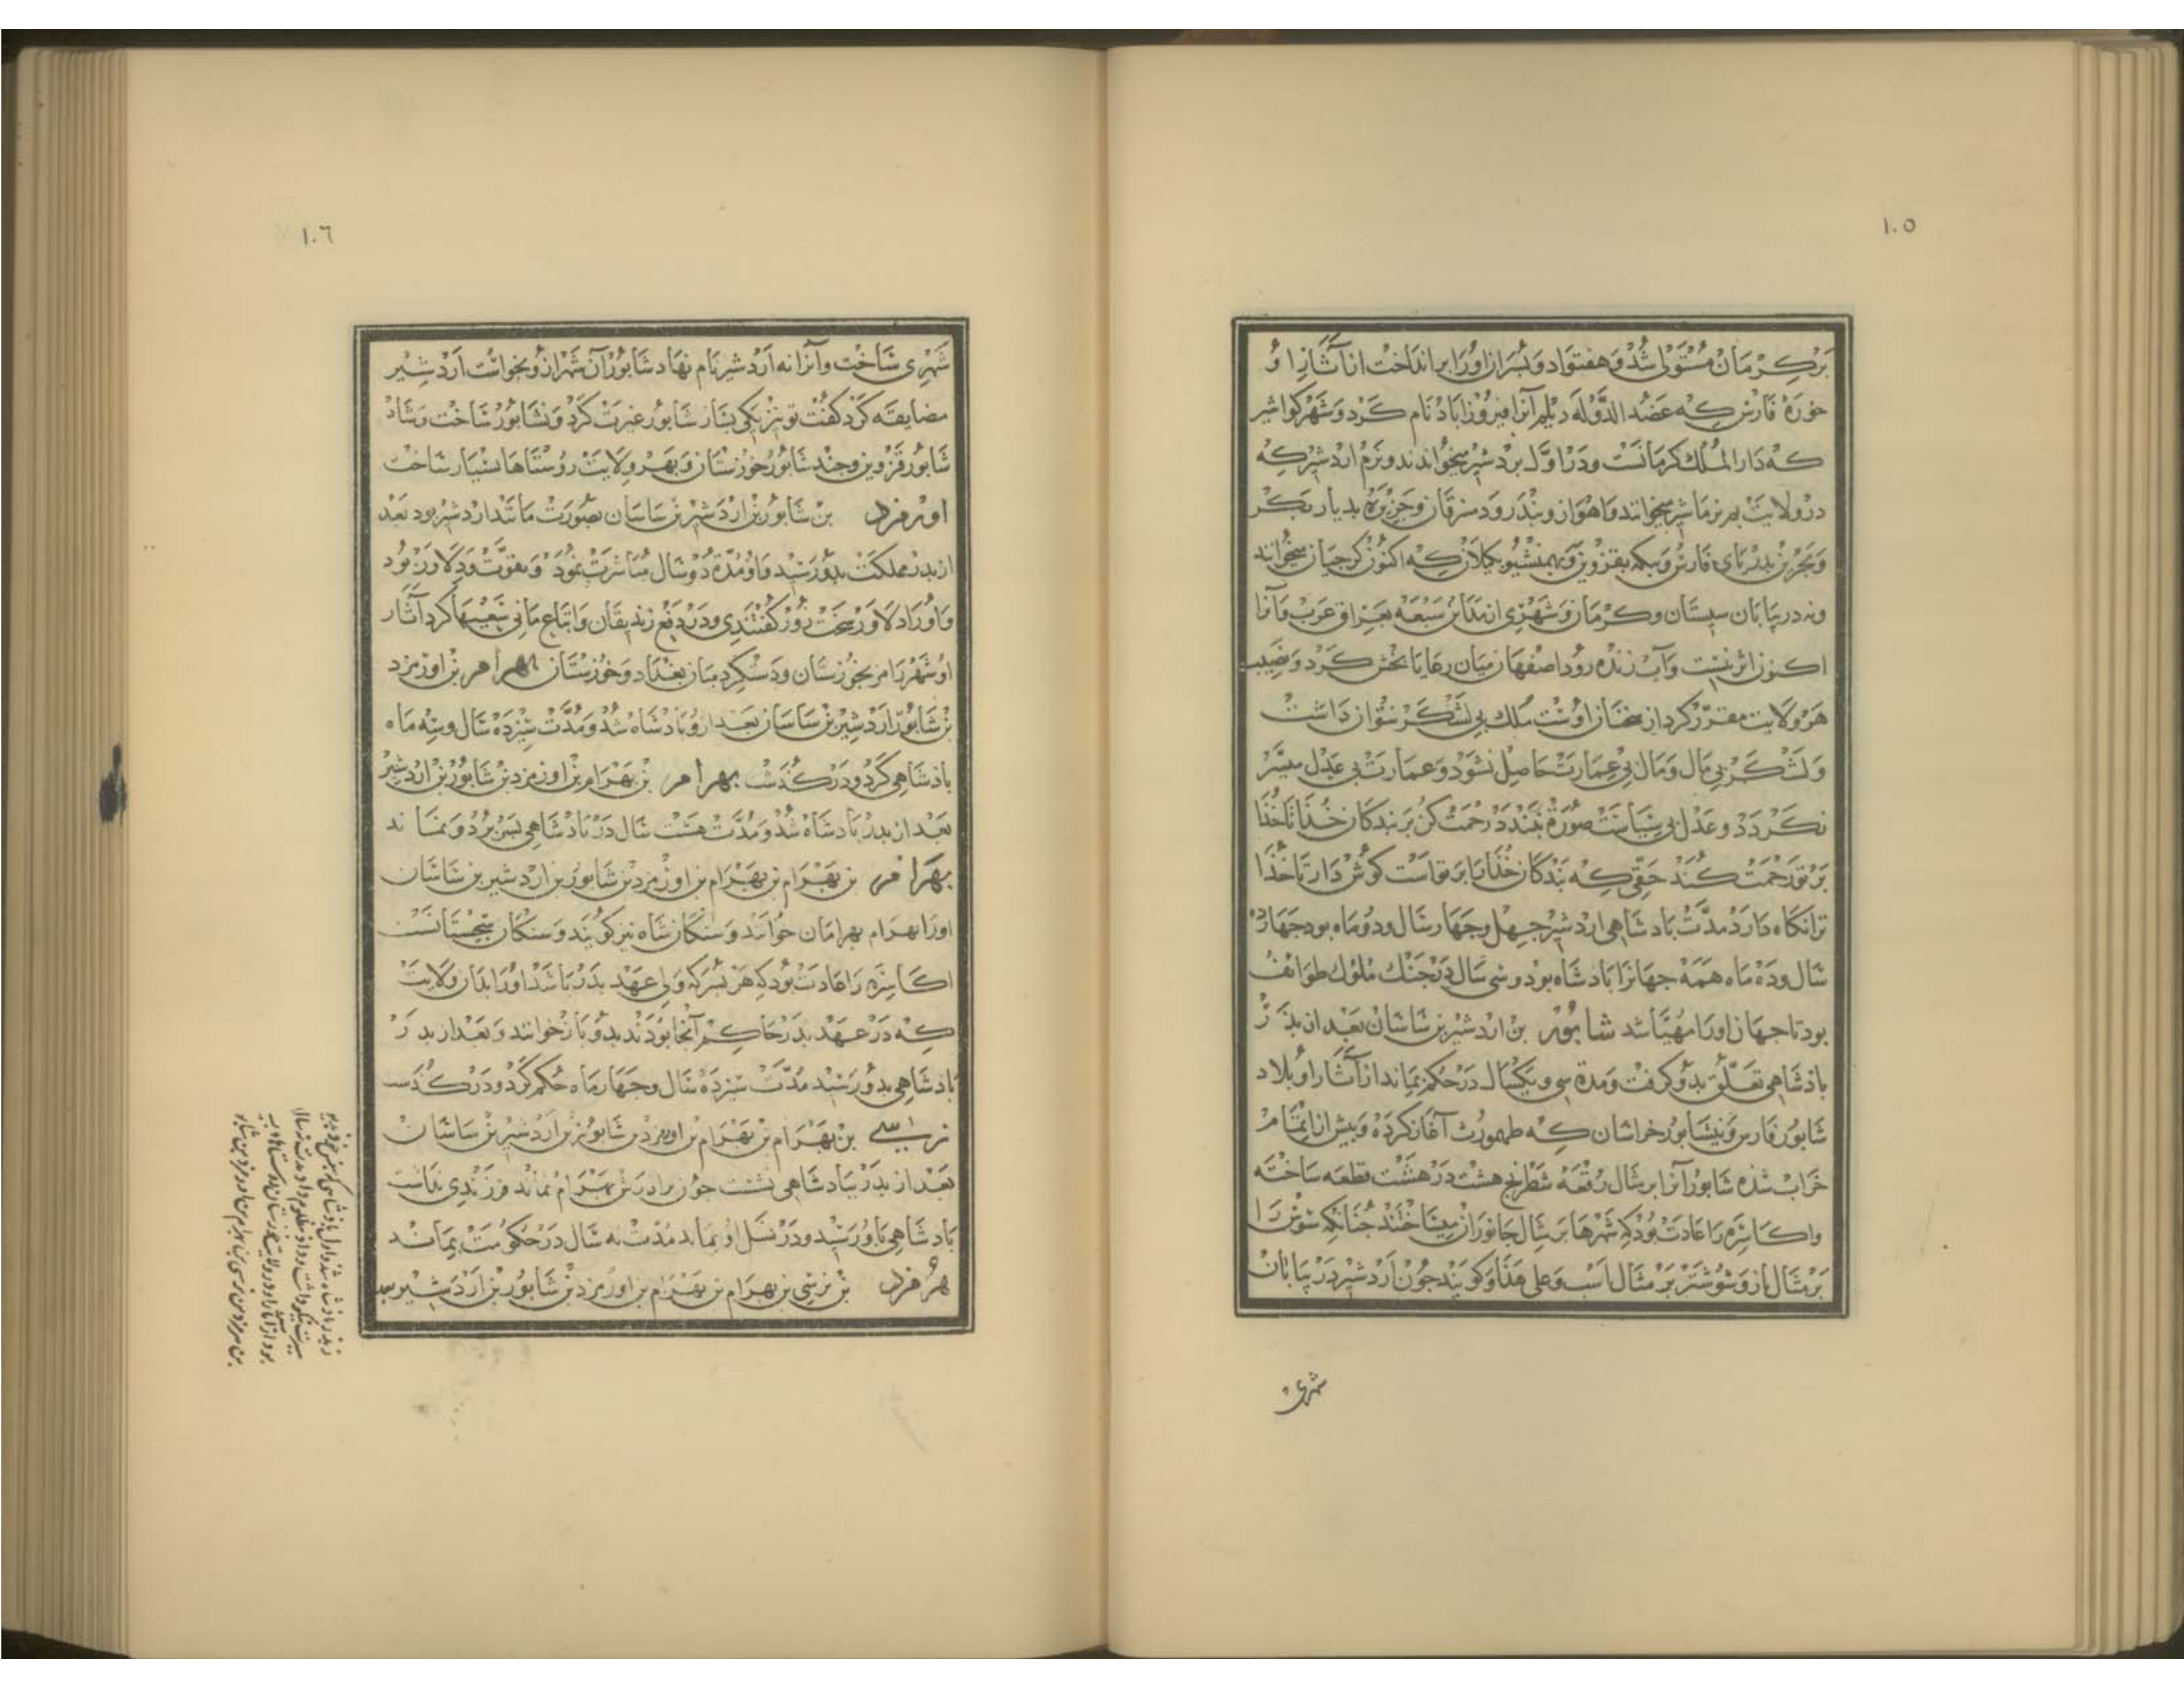 ١٠٥
بر کرمان مستولی شد و هفتواد و پسران او را بر انداخت از آثار او
خورهٔ فارس که عضد الدوله دیلم آنرا فیروزاباد نام کرد و شهر کواشیر
که دار الملک کرمانست و در اول بردشیر میخواندند و نرم اردشیر که
در ولایت بم نرماشیر میخوانند و اهواز و بندر رود مسرقان و جزیره بدیار بکر
و بحرین بدریای فارس و بیکه بقزوین و بهمنشیر بکیلان که اکنون کرجیان میخوانند
و نه در بیابان سیستان و کرمان و شهری از مداین سبعه بعراق عرب و آنرا
اکنون اثر نیست و آب زنده رود اصفهان میان رعایا بخش کرد و نصیب
هر ولایت مقرر کرد از سخنان اوست ملک بی لشکر نتوان داشت
و لشکر بی مال و مال بی عمارت حاصل نشود و عمارت بی عدل میسر
نکردد و عدل بی سیاست صورة نبندد رحمت کن بر بندکان خدا تا خدا
بر تو رحمت کند حقی که بندکان خدا را بر تواست کوش دار تا خدا
ترا نکاه دارد مدت بادشاهی اردشیر جهل و جهار سال و دو ماه بود جهارده
سال و ده ماه همه جهانرا بادشاه بود و سی سال در جنک ملوک طوایف
بود تا جهان اورا مهیا شد شابور بن اردشیر بن ساسان بعد از بذر
باذشاهی تعلق بدو کرفت و مدة سی و یکسال در حکم بماند از آثار او بلاد
شابور فارس و نیشابور خراسان که طهمورث آغاز کرده و بیش از اتمام
خراب شده شابور آنرا بر شال رقعه شطرنج هشت در هشت قطعه ساخته
و اکاسره را عادت بود که شهرها بر مثال جانوران میساختند جنانکه شوش را
بر مثال باز و شوشتر بر مثال اسب و علی هذا و کویند جون اردشیر در بیابان
شهری
١٠٦
شهری ساخت و آنرا نه اردشیر نام نهاد شابور آن شهر ازو بخواست اردشیر
مضایقه کرد کفت تو نیز یکی بساز شابور غیرت کرد و نشابور ساخت و شاد
شابور قزوین و جند شابور خوزستان و بهر ولایت روستاها بسیار ساخت
اورمزد بن شابور بن اردشیر بن ساسان بصورت مانند اردشیر بود بعد
از بدر مملکت بدو رسید و او مدة دو سال مباشرت نمود و بقوت و دلاور بود
و او را دلاور سخت زور کفتندی و در دفع زندیقان و اتباع مانی سعیها کرد آثار
او شهر رامز بخوزستان و دسکره میان بغداد و خوزستان بهرام بن اورمزد
بن شابور اردشیر بن ساسان بعد ازو بادشاه شد و مدت سیزده سال و سه ماه
باذشاهی کرد و درکذشت بهرام بن بهرام بن اورمزد بن شابور بن اردشیر
بعد از بدر بادشاه شد و مدت هشت سال در بادشاهی بسر برد و نماند
بهرام بن بهرام بن بهرام بن اورمزد بن شابور بن اردشیر بن ساسان
اورا بهرام بهرامان خوانند و سنکان شاه نیز کویند و سنکان سجستانست
اکاسره را عادت بود که هر بسر که ولی عهد بدر باشد اورا بدان ولایت
که در عهد بدر حاکم آنجا بودند بدو باز خوانند و بعد از بدر
بادشاهی بدو رسید مدت سیزده سال و جهار ماه حکم کرد و درکذشت
نرسی بن بهرام بن بهرام بن اورمزد بن شابور بن اردشیر بن ساسان
بعد از بدر ببادشاهی نشست جون برادرش بهرام نماند فرزندی نداشت
بادشاهی باو رسید و در نسل او بماند مدت نه سال در حکومت بماند
هرمزد بن نرسی بن بهرام بن بهرام بن اورمزد بن شابور بن اردشیر بعد